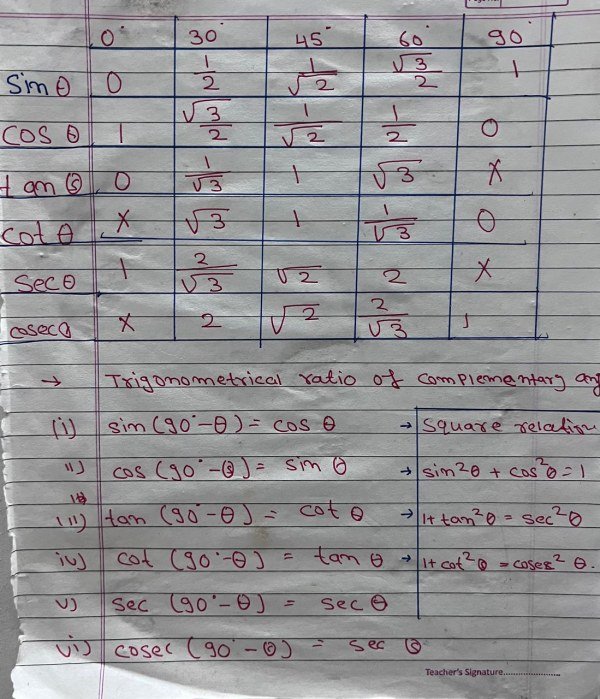 0° 30° 45° 60° 90°
Sin θ 0 1/2 1/√2 √3/2 1
COS θ 1 √3/2 1/√2 1/2 0
tan θ 0 1/√3 1 √3 X
Cot θ X √3 1 1/√3 0
Sec θ 1 2/√3 √2 2 X
cosec θ X 2 √2 2/√3 1
→ Trigonometrical ratio of complementary ang
(i) sin (90°-θ) = cos θ → Square relation
ii) cos (90°-θ) = sin θ → sin²θ + cos²θ = 1
(iii) tan (90°-θ) = cot θ → 1+tan²θ = sec²θ
iv) cot (90°-θ) = tan θ → 1+cot²θ = cosec² θ.
v) sec (90°-θ) = sec θ
vi) cosec (90°-θ) = sec θ
Teacher's Signature....................